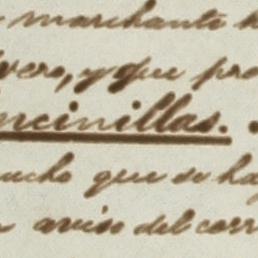 marchante
vero, y que pro
ncinillas.
ucho que se ha
aviso del corr